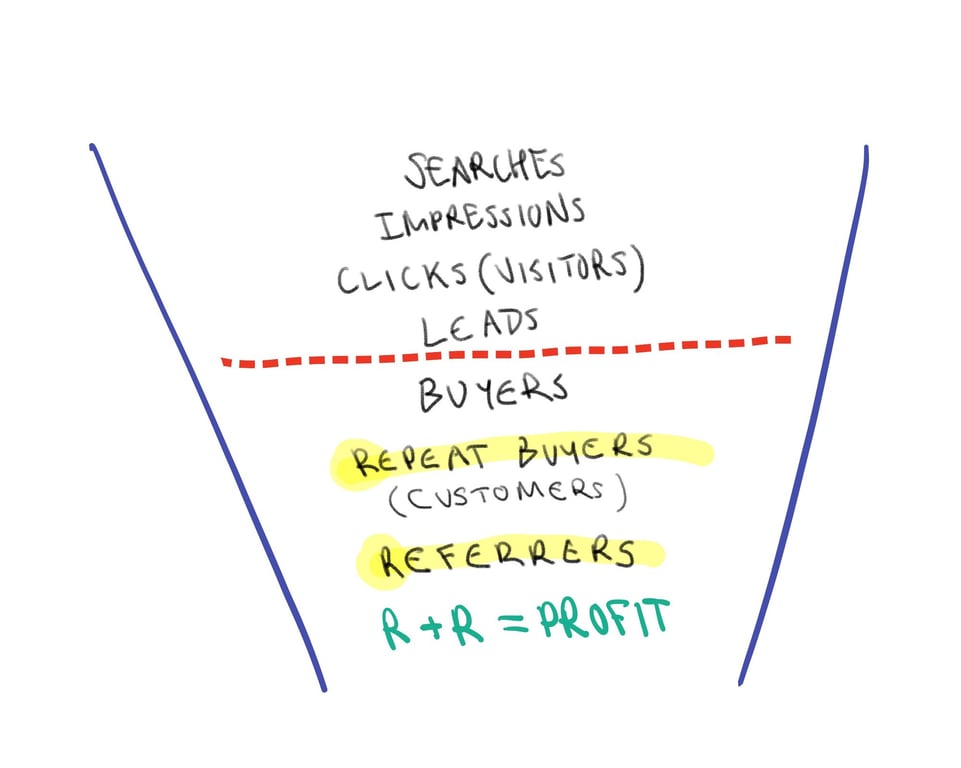 SEARCHES
IMPRESSIONS
CLICKS (VISITORS)
LEADS
BUYERS
REPEAT BUYERS
(CUSTOMERS)
REFERRERS
R + R = PROFIT